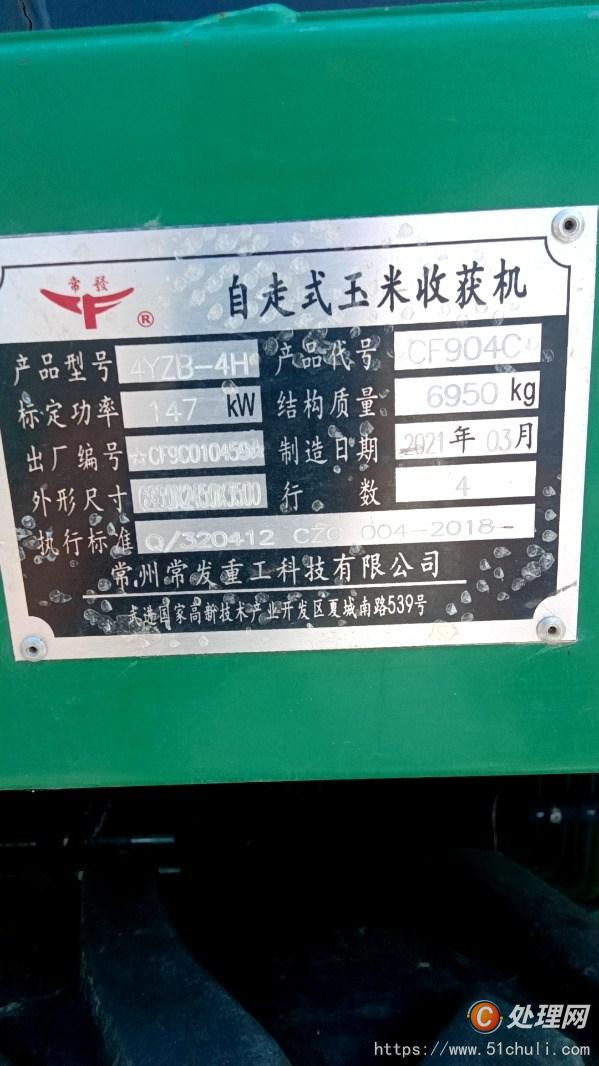 常發
CF ®
自走式玉米收获机
产品型号 4YZB-4H 产品代号 CF904C
标定功率 147 kW 结构质量 6950 kg
出厂编号 ☆CF9C010459☆ 制造日期 2021年03月
外形尺寸 行数 4
执行标准 Q/320412 CZC 004-2018
常州常发重工科技有限公司
武进国家高新技术产业开发区夏城南路539号
C 处理网
https://www.51chuli.com